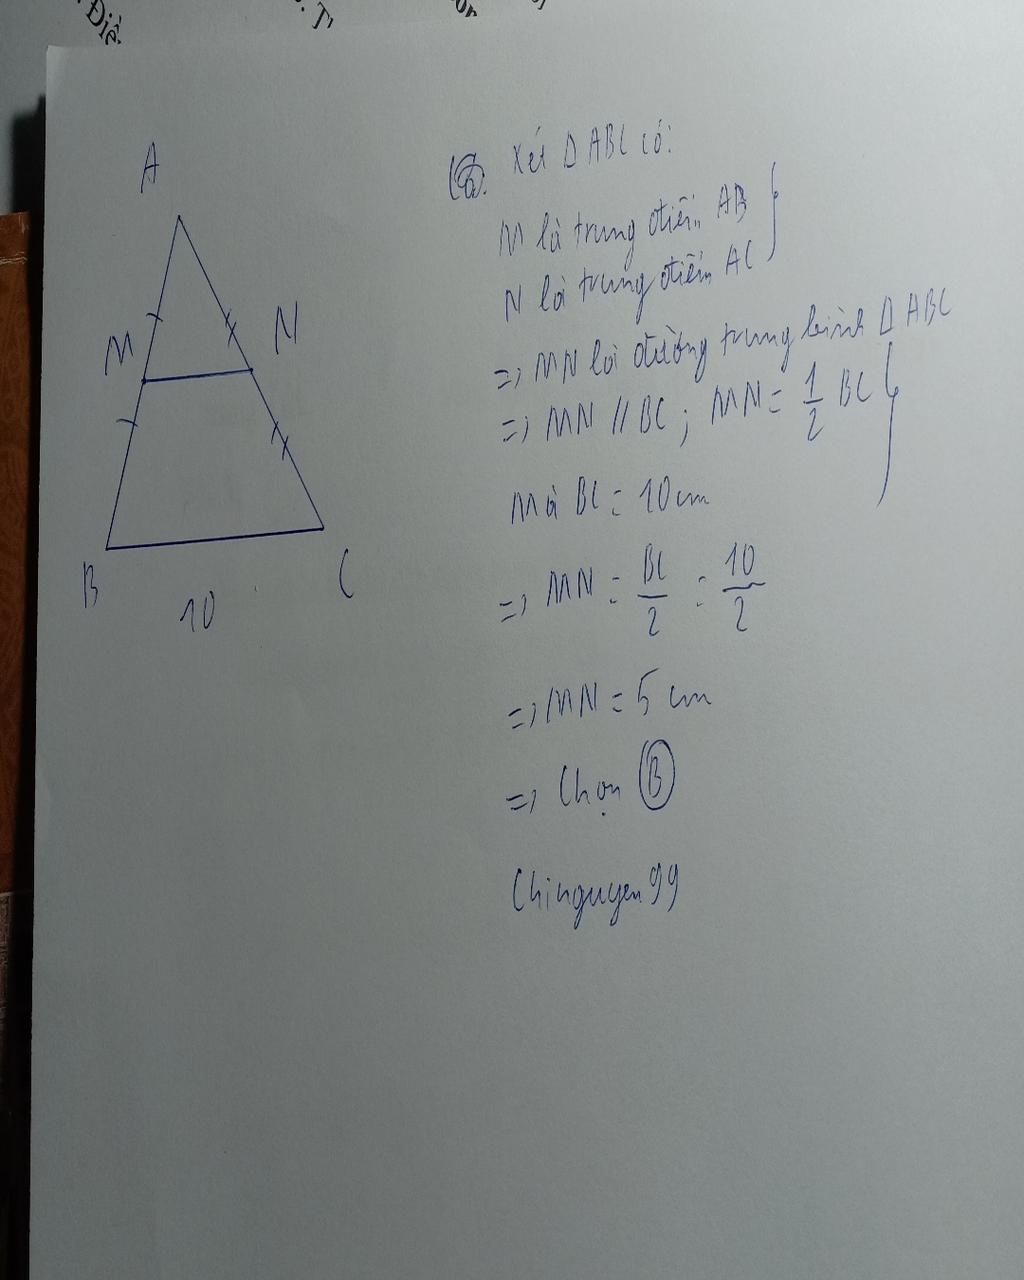 Điề
A
M
N
B
C
10
Xét Δ ABC có:
M là trung điểm AB
N là trung điểm AC
=> MN là đường trung bình Δ ABC
=> MN // BC ; MN = 1/2 BC
Mà BC = 10 cm
=> MN = BC/2 = 10/2
=> MN = 5 cm
=> Chọn B
Chinguyen99